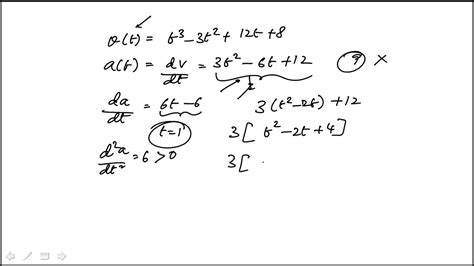 v(t) = t³-3t²+12t+8
a(t) = dv/dt = 3t²-6t+12 9 ×
da/dt = 6t-6 3(t²-2t)+12
t=1 3[t²-2t+4]
d²a/dt² = 6>0 3[